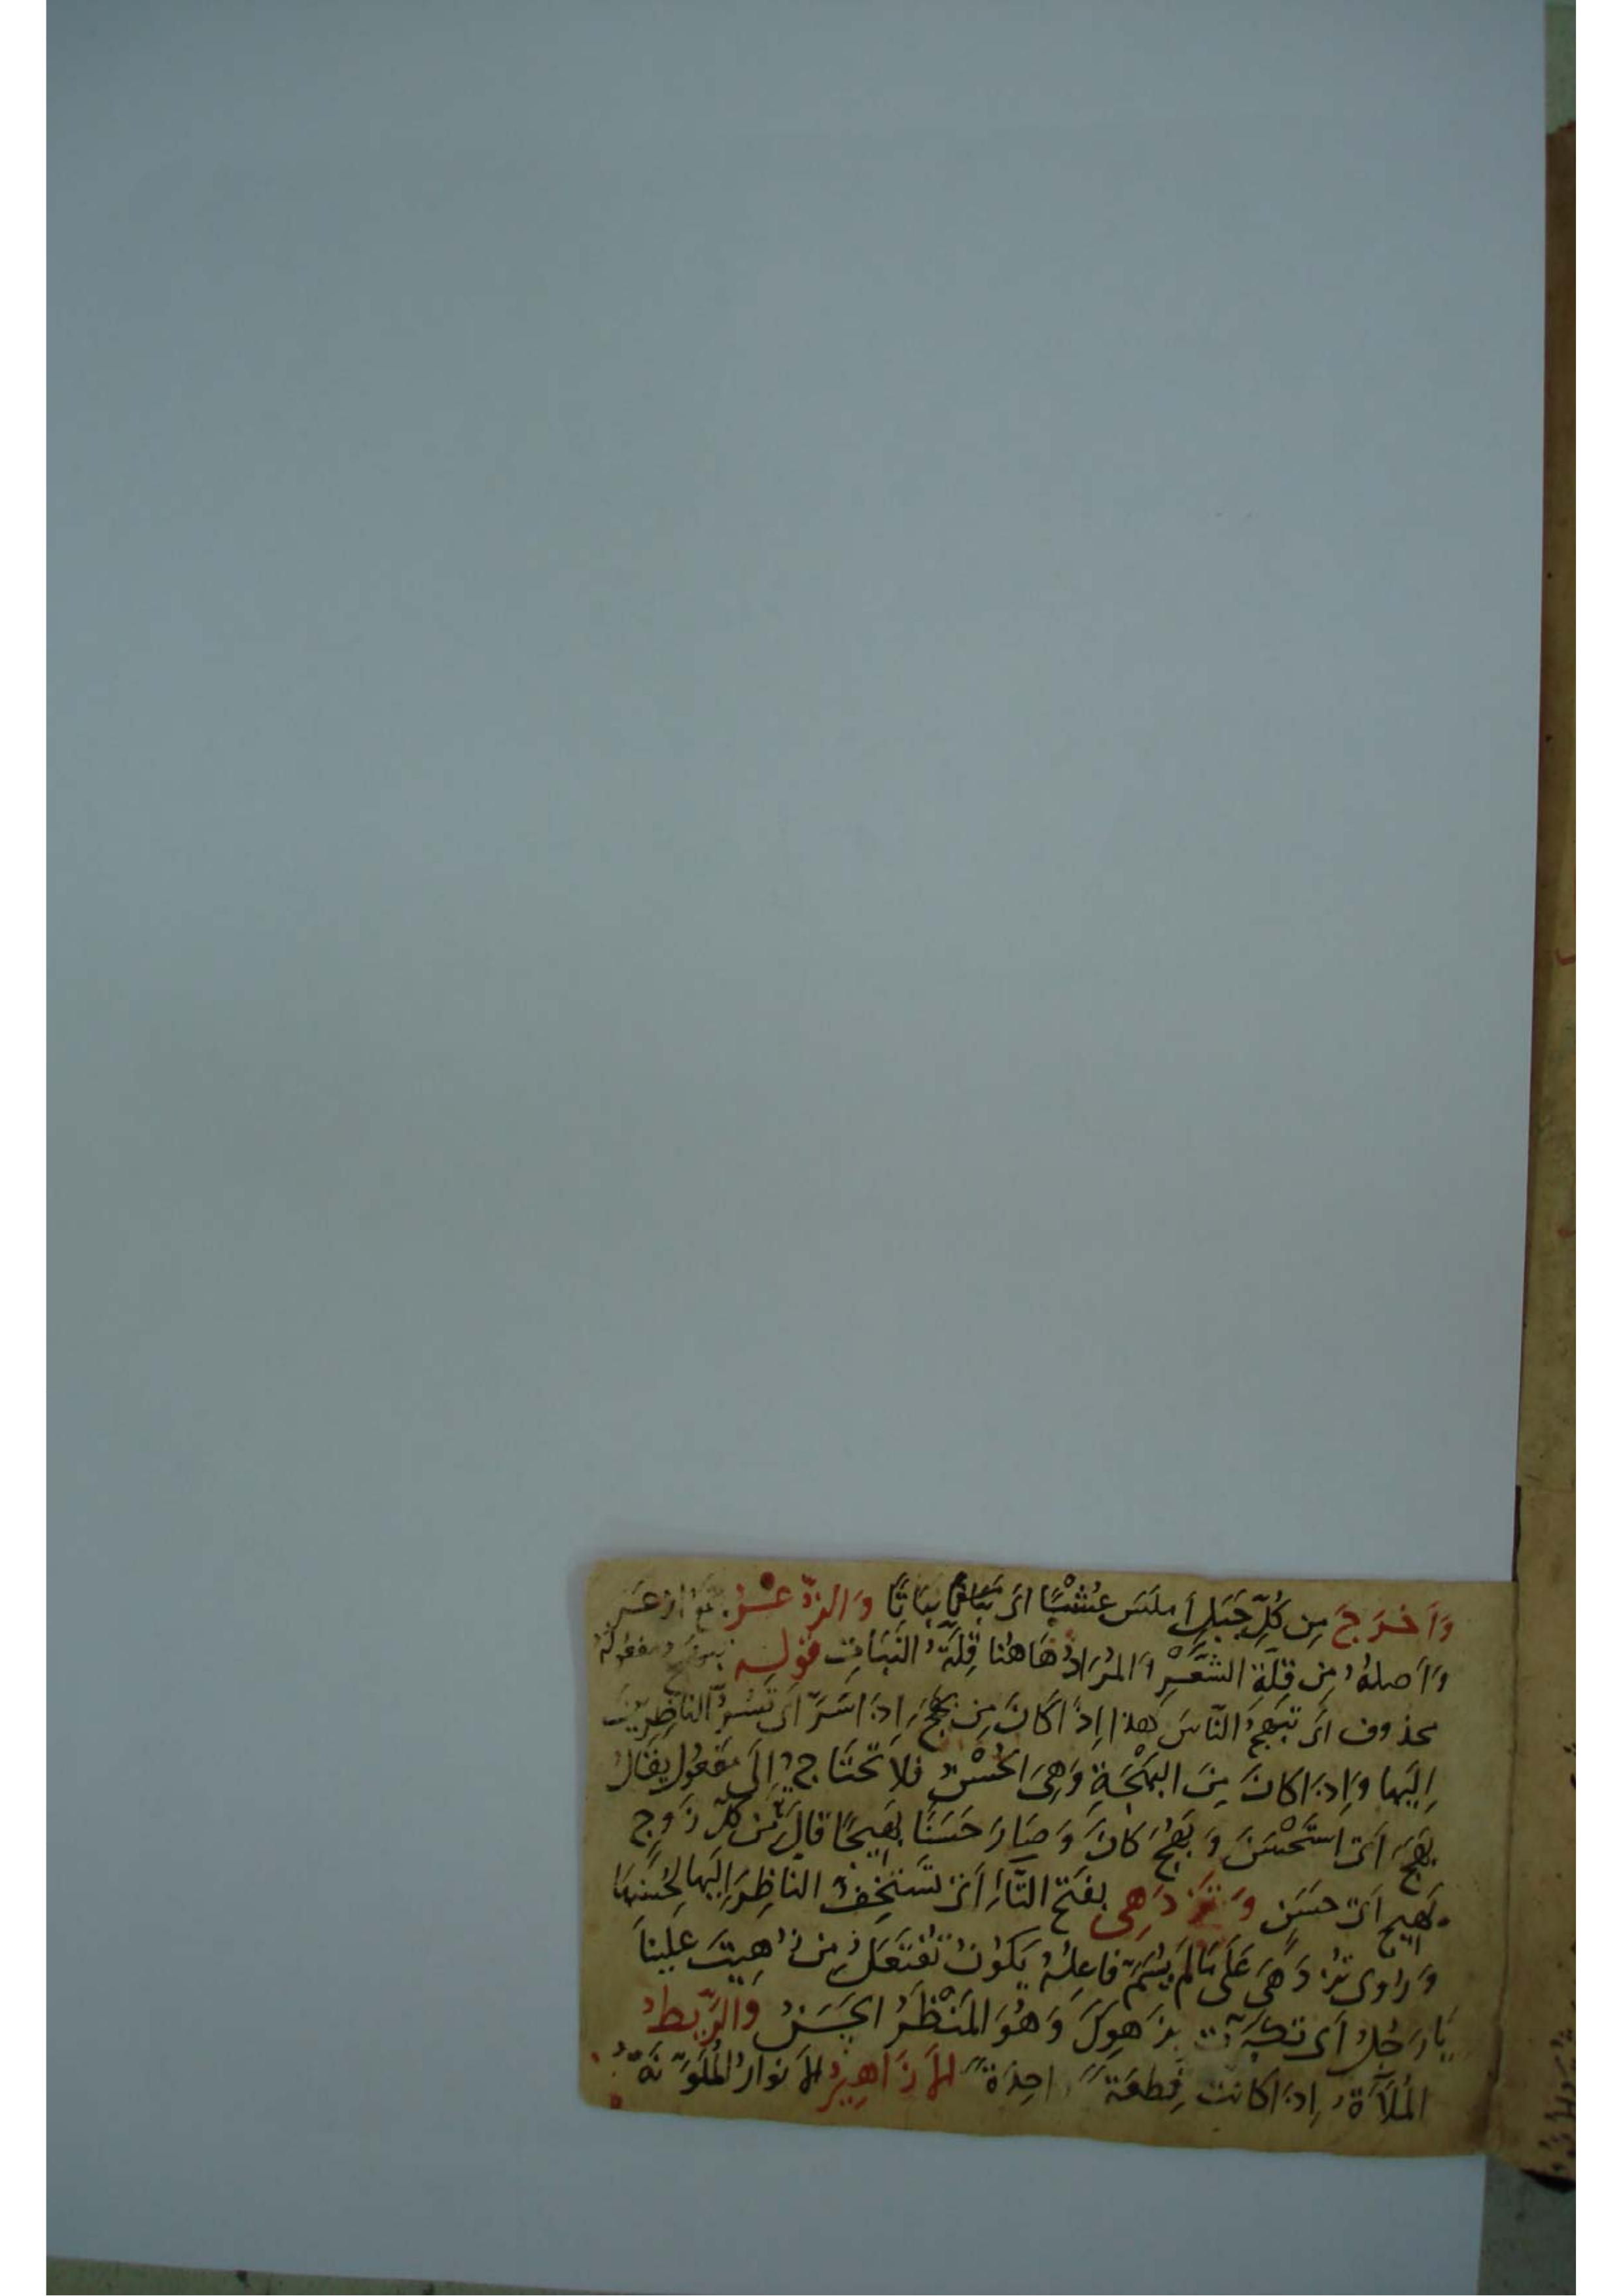 وَأَخْرَجَ مِن كُلِّ جَبَلٍ أَملَسَ عُشْبًا اَى نَبَاتًا وَالزُّعْرُ: جمعُ ازعَر
وَاَصلهُ مِن قِلَّةِ الشَّعَرِ وَالمُرَادُ هَاهُنا قِلَّةُ النَّبَاتِ قوله تبهج ومفعوله
محذوف اَى تبهَجُ النَّاسَ هذا اِذَا كَانَ مِن بَهَجَ اِذَا سَرَّ اَى تَسُرُّ النَّاظِرِينَ
اِلَيها وَاِذَا كَانَ مِنَ البَهْجَةِ وَهِىَ الحُسْنُ فلاَ تَحتَاجُ اِلَى مَفعُولٍ يقَالُ
بَهِجَ اَى استَحْسَنَ وَبَهُجَ كَانَ وَصَارَ حَسَنًا بَهِيجًا قَالَ مِن كُلِّ زَوجٍ
بَهِيجٍ اَى حَسَنٍ وَتَزدَهِى بفَتحِ التَّاءِ اَى تَستَخِفُّ النَّاظِرَ اِلَيها لحُسنِها
وَرُوى تُزدَهَى عَلَى مَالَم يُسَمَّ فَاعِلُهُ يَكُونُ تُفتَعَلُ مِن زُهِيتَ عَلَينَا
يَا رَجُلُ اَى تكَبَّرتَ بزَهوِكَ وَهُوَ المَنْظَرُ الحَسَنُ وَالرَّيطُ
المُلاَءَةُ اِذَا كَانَت قِطعَةً وَاحِدَةً الاَزَاهِيرُ الاَنوَارُ المُلَوَّنَةُ